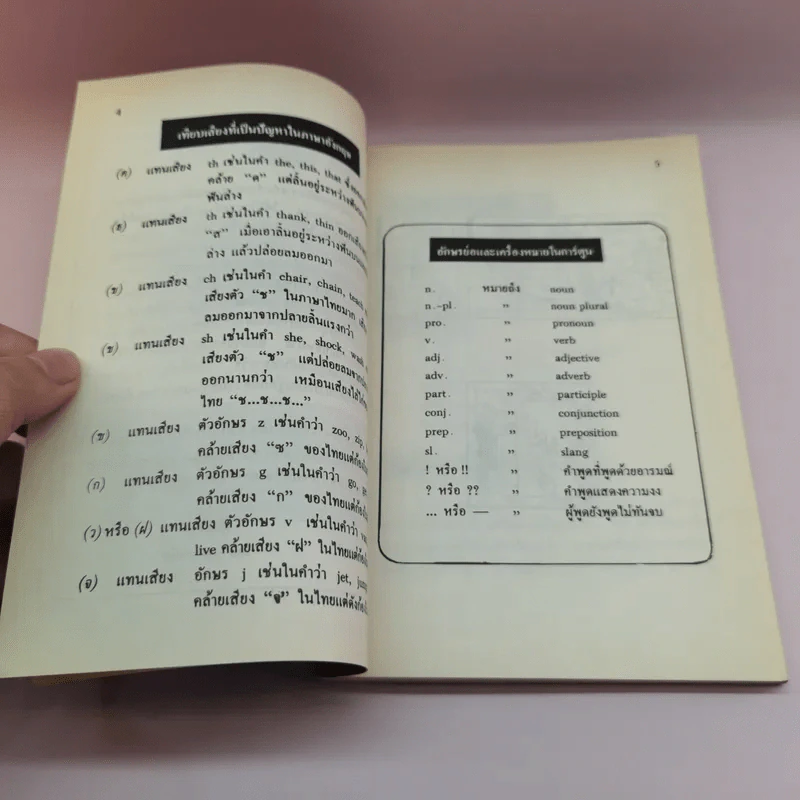 ๔
เทียบเสียงที่เป็นปัญหาในภาษาอังกฤษ
(ด) แทนเสียง th เช่นในคำ the, this, that
คล้าย “ด” แต่ลิ้นอยู่ระหว่าง
ฟันล่าง
แทนเสียง th เช่นในคำ thank, thin
“ส” เมื่อเอาลิ้นอยู่ระหว่างฟันบน
ล่าง แล้วปล่อยลมออกมา
(ช) แทนเสียง ch เช่นในคำ chair, chain,
เสียงตัว “ช” ในภาษาไทยมาก
ลมออกมาจากปลายลิ้นแรงกว่า
(ช) แทนเสียง sh เช่นในคำ she, shock,
เสียงตัว “ช” แต่ปล่อยลม
ออกนานกว่า เหมือนเสียงไล่
ไทย “ช...ช...ช...”
(ซ) แทนเสียง ตัวอักษร z เช่นคำว่า zoo, zip,
คล้ายเสียง “ซ” ของไทยแต่
(ก) แทนเสียง ตัวอักษร g เช่นในคำว่า go,
คล้ายเสียง “ก” ของไทยแต่
(ว) หรือ (ฝ) แทนเสียง ตัวอักษร v เช่นในคำว่า
live คล้ายเสียง “ฝ” ในไทยแต่
(จ) แทนเสียง อักษร j เช่นในคำว่า jet,
คล้ายเสียง “จ” ในไทยแต่
๕
อักษรย่อและเครื่องหมายในการ์ตูน
n. หมายถึง noun
n.-pl. ” noun plural
pro. ” pronoun
v. ” verb
adj. ” adjective
adv. ” adverb
part. ” participle
conj. ” conjunction
prep. ” preposition
sl. ” slang
! หรือ !! ” คำพูดที่พูดด้วยอารมณ์
? หรือ ?? ” คำพูดแสดงความงง
... หรือ — ” ผู้พูดยังพูดไม่ทันจบ